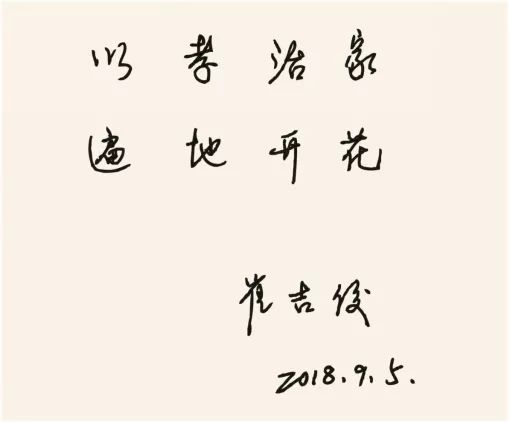 以孝治家
遍地开花
崔吉俊
2018.9.5.